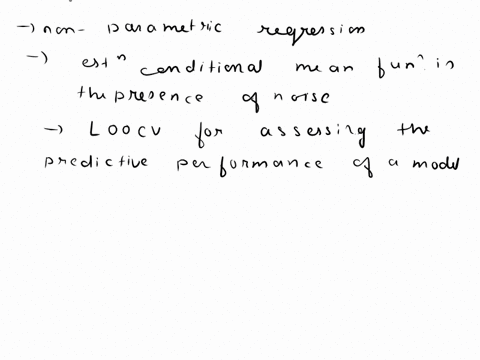 → non-parametric regression
→ estⁿ conditional mean funⁿ in
the presence of noise
→ LOOCV for assessing the
predictive performance of a model